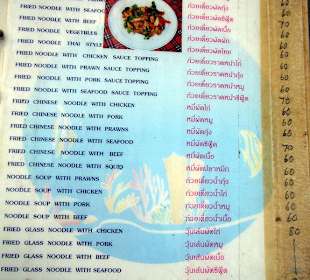 FRIED NOODLE WITH SEAFOOD ก๋วยเตี๋ยวผัดกุ้ง
FRIED NOODLE WITH BEEF ก๋วยเตี๋ยวผัดซีฟู้ด 60
FRIED NOODLE VEGETBLES ก๋วยเตี๋ยวผัดเนื้อ 60
FRIED NOODLE THAI STYLE
FRIED NOODLE WITH CHICKEN SAUCE TOPPING ก๋วยเตี๋ยวผัดไทย
FRIED NOODLE WITH PRAWN SAUCE TOPPING ก๋วยเตี๋ยวราดหน้าไก่
FRIED NOODLE WITH PORK SAUCE TOPPING ก๋วยเตี๋ยวราดหน้ากุ้ง 60
FRIED NOODLE WITH SEAFOOD SAUCE TOPPING ก๋วยเตี๋ยวราดหน้าหมู 60
FRIED CHINESE NOODLE WITH CHICKEN ก๋วยเตี๋ยวราดหน้าซีฟู้ด 70
FRIED CHINESE NOODLE WITH PORK หมี่ผัดไก่ 60
FRIED CHINESE NOODLE WITH PRAWNS หมี่ผัดหมู 60
FRIED CHINESE NOODLE WITH SEAFOOD หมี่ผัดกุ้ง 60
FRIED CHINESE NOODLE WITH BEEF หมี่ผัดซีฟู้ด 70
FRIED CHINESE NOODLE WITH SQUID หมี่ผัดเนื้อ 60
NOODLE SOUP WITH PRAWNS หมี่ผัดปลาหมึก 60
NOODLE SOUP WITH CHICKEN ก๋วยเตี๋ยวน้ำกุ้ง 60
NOODLE SOUP WITH PORK ก๋วยเตี๋ยวน้ำไก่ 60
NOODLE SOUP WITH BEEF ก๋วยเตี๋ยวน้ำหมู 60
FRIED GLASS NOODLE WITH CHICKEN ก๋วยเตี๋ยวน้ำเนื้อ 60
FRIED GLASS NOODLE WITH PORK วุ้นเส้นผัดไก่ 80
FRIED GLASS NOODLE WITH BEEF วุ้นเส้นผัดหมู
FRIED GLASS NOODLE WITH SEAFOOD วุ้นเส้นผัดเนื้อ
วุ้นเส้นผัดซีฟู้ด